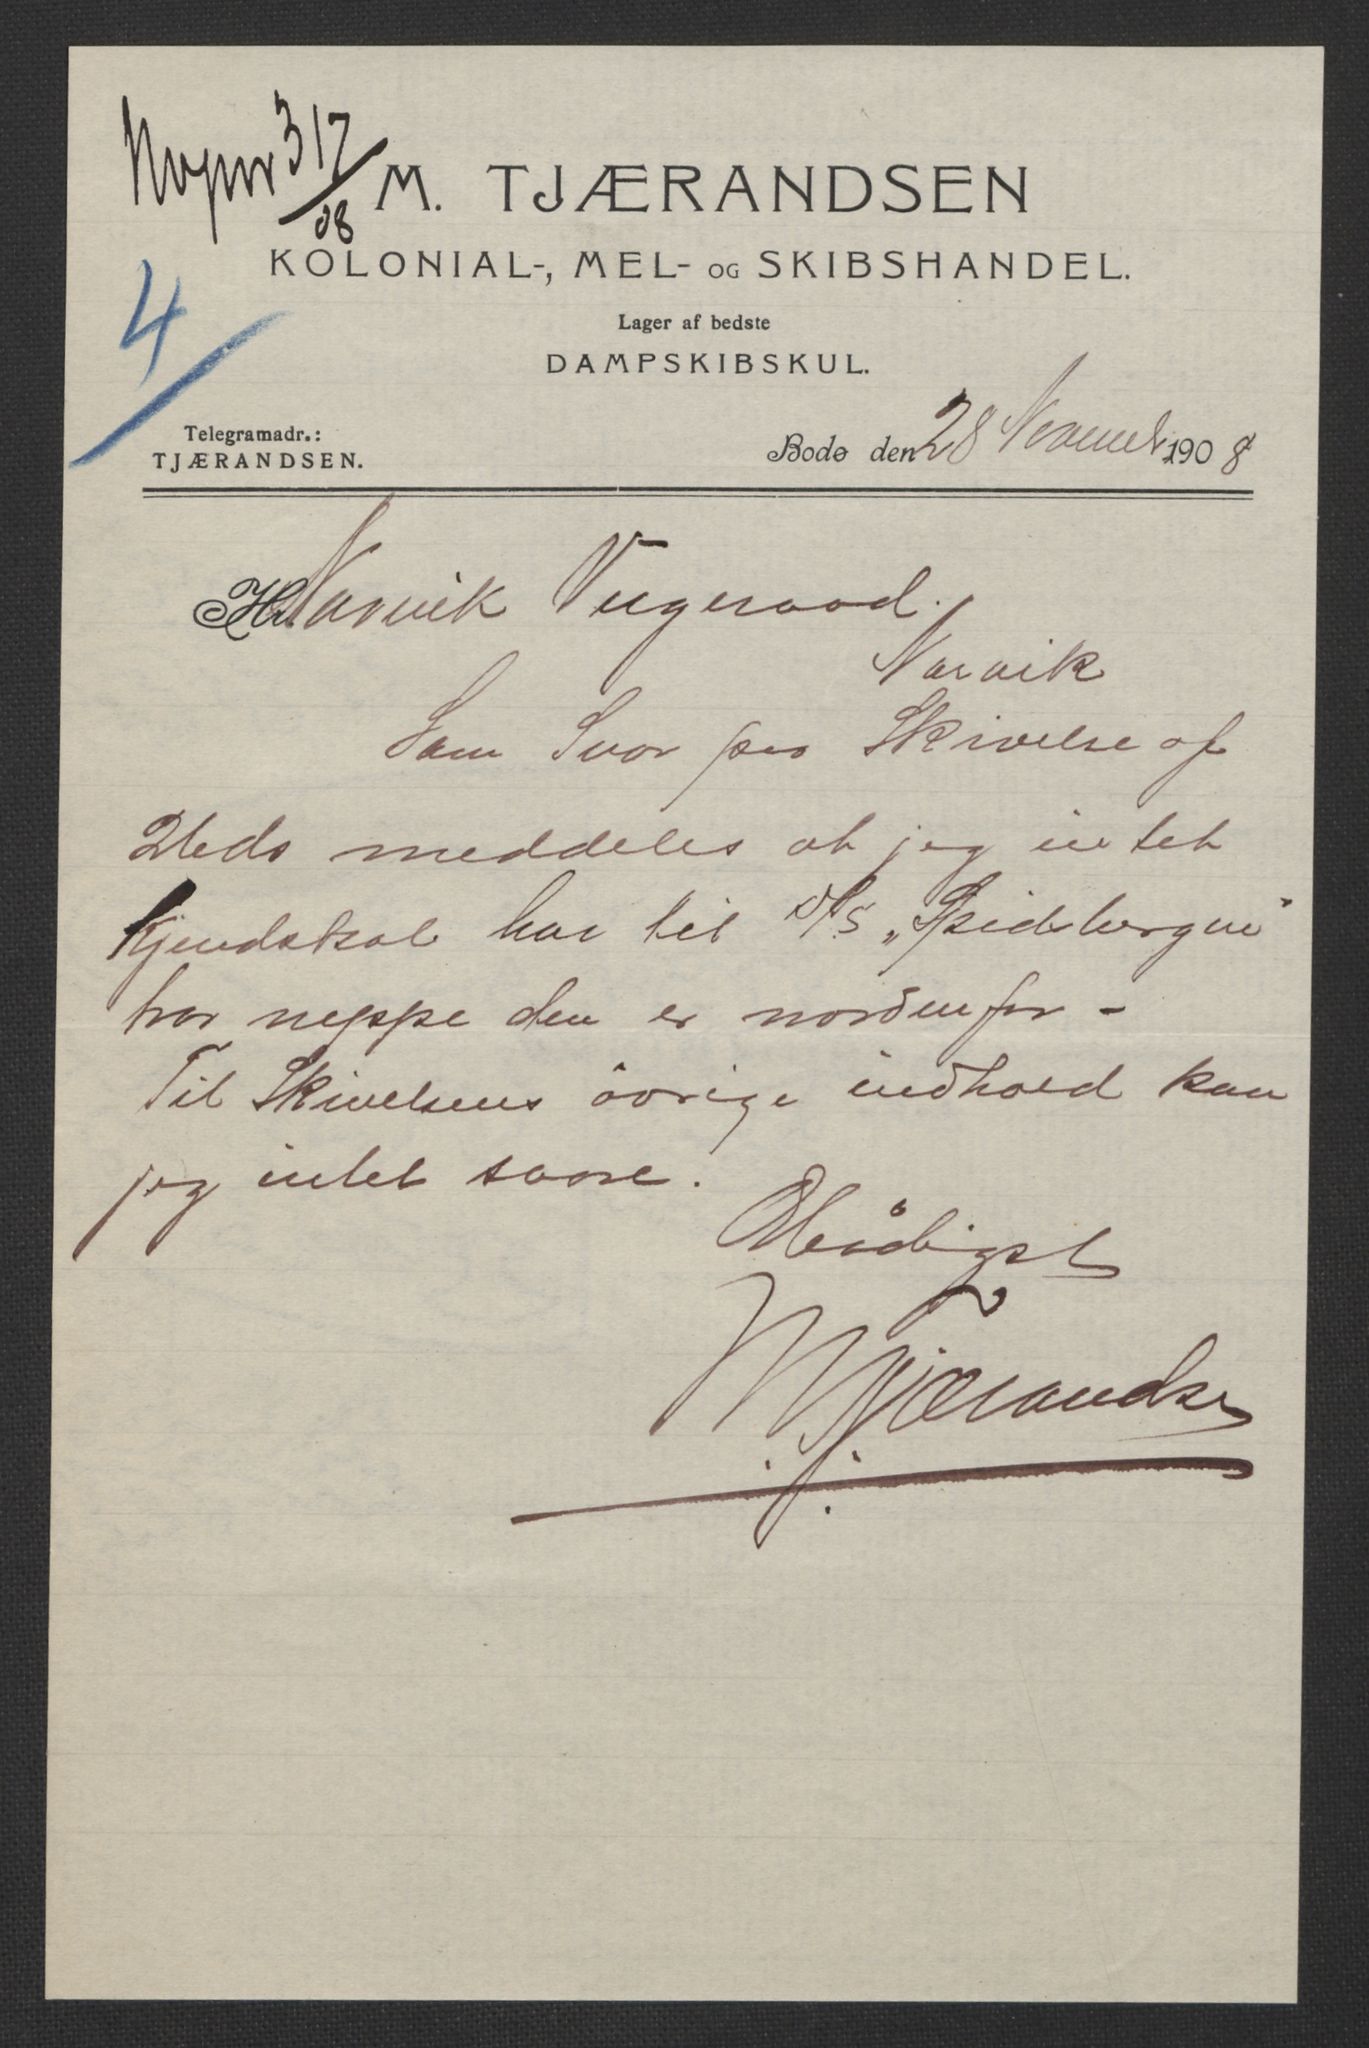 317
08
M. TJÆRANDSEN
KOLONIAL-, MEL- OG SKIBSHANDEL.
Lager af bedste
DAMPSKIBSKUL.
4
Telegramadr.:
TJÆRANDSEN.
Bodø den 28 November 1908
Hr. Narvik Vegeraad.
Narvik
Som Svar paa Skivelse af
meddeles at jeg intet
kjendskab har til D/S „Spidsbergen"
tror neppe den er nordenfor -
Til Skivelsens øvrige indhold kan
jeg intet svare.
Ærbødigst
M. Tjærandsen